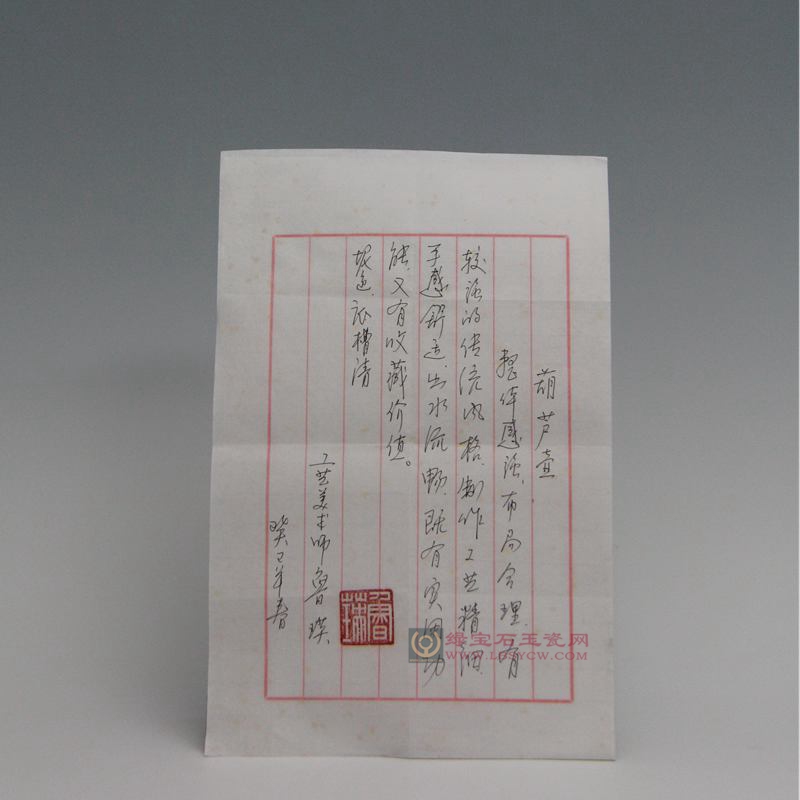 葫芦壶
整体感强、布局合理、有
较强的传统风格、制作工艺精细、
手感舒适、出水流畅、既有实用功
能、又有收藏价值。
泥色、底槽清
工艺美术师鲁瑛
癸巳年春
绿宝石玉瓷网
WWW.LBSYCW.COM